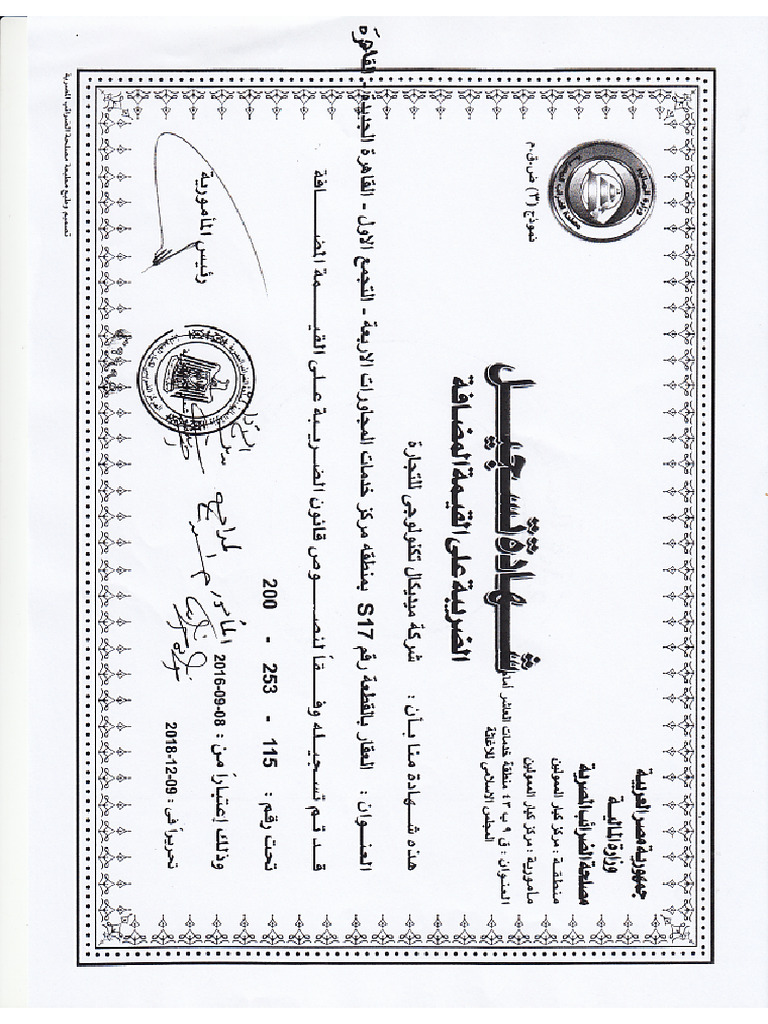 جمهورية مصر العربية
وزارة المالية
مصلحة الضرائب المصرية
منطقة : مركز كبار الممولين
مأمورية : مركز كبار الممولين
العنوان : ق ٩ ب ٤٣ منطقة خدمات العاشر أمام
المجلس الاسلامي للاغاثة
نموذج (٣) ض.ق.م
شهادة تسجيل
الضريبة على القيمة المضافة
هذه شهادة منا بأن : شركة ميديكال تكنولوجى للتجارة
العنوان : العقار بالقطعة رقم S17 بمنطقه مركز خدمات المجاورات الاربعة - التجمع الاول - القاهرة الجديدة - القاهرة
قد تم تسجيله وفقا لنصوص قانون الضريبة على القيمة المضافة
تحت رقم : 115 - 253 - 200
وذلك إعتباراً من : 08-09-2016
تحريراً فى : 09-12-2018
المأمور
المراجع
رئيس المأمورية
تصميم وطبع مطبعة مصلحة الضرائب المصرية